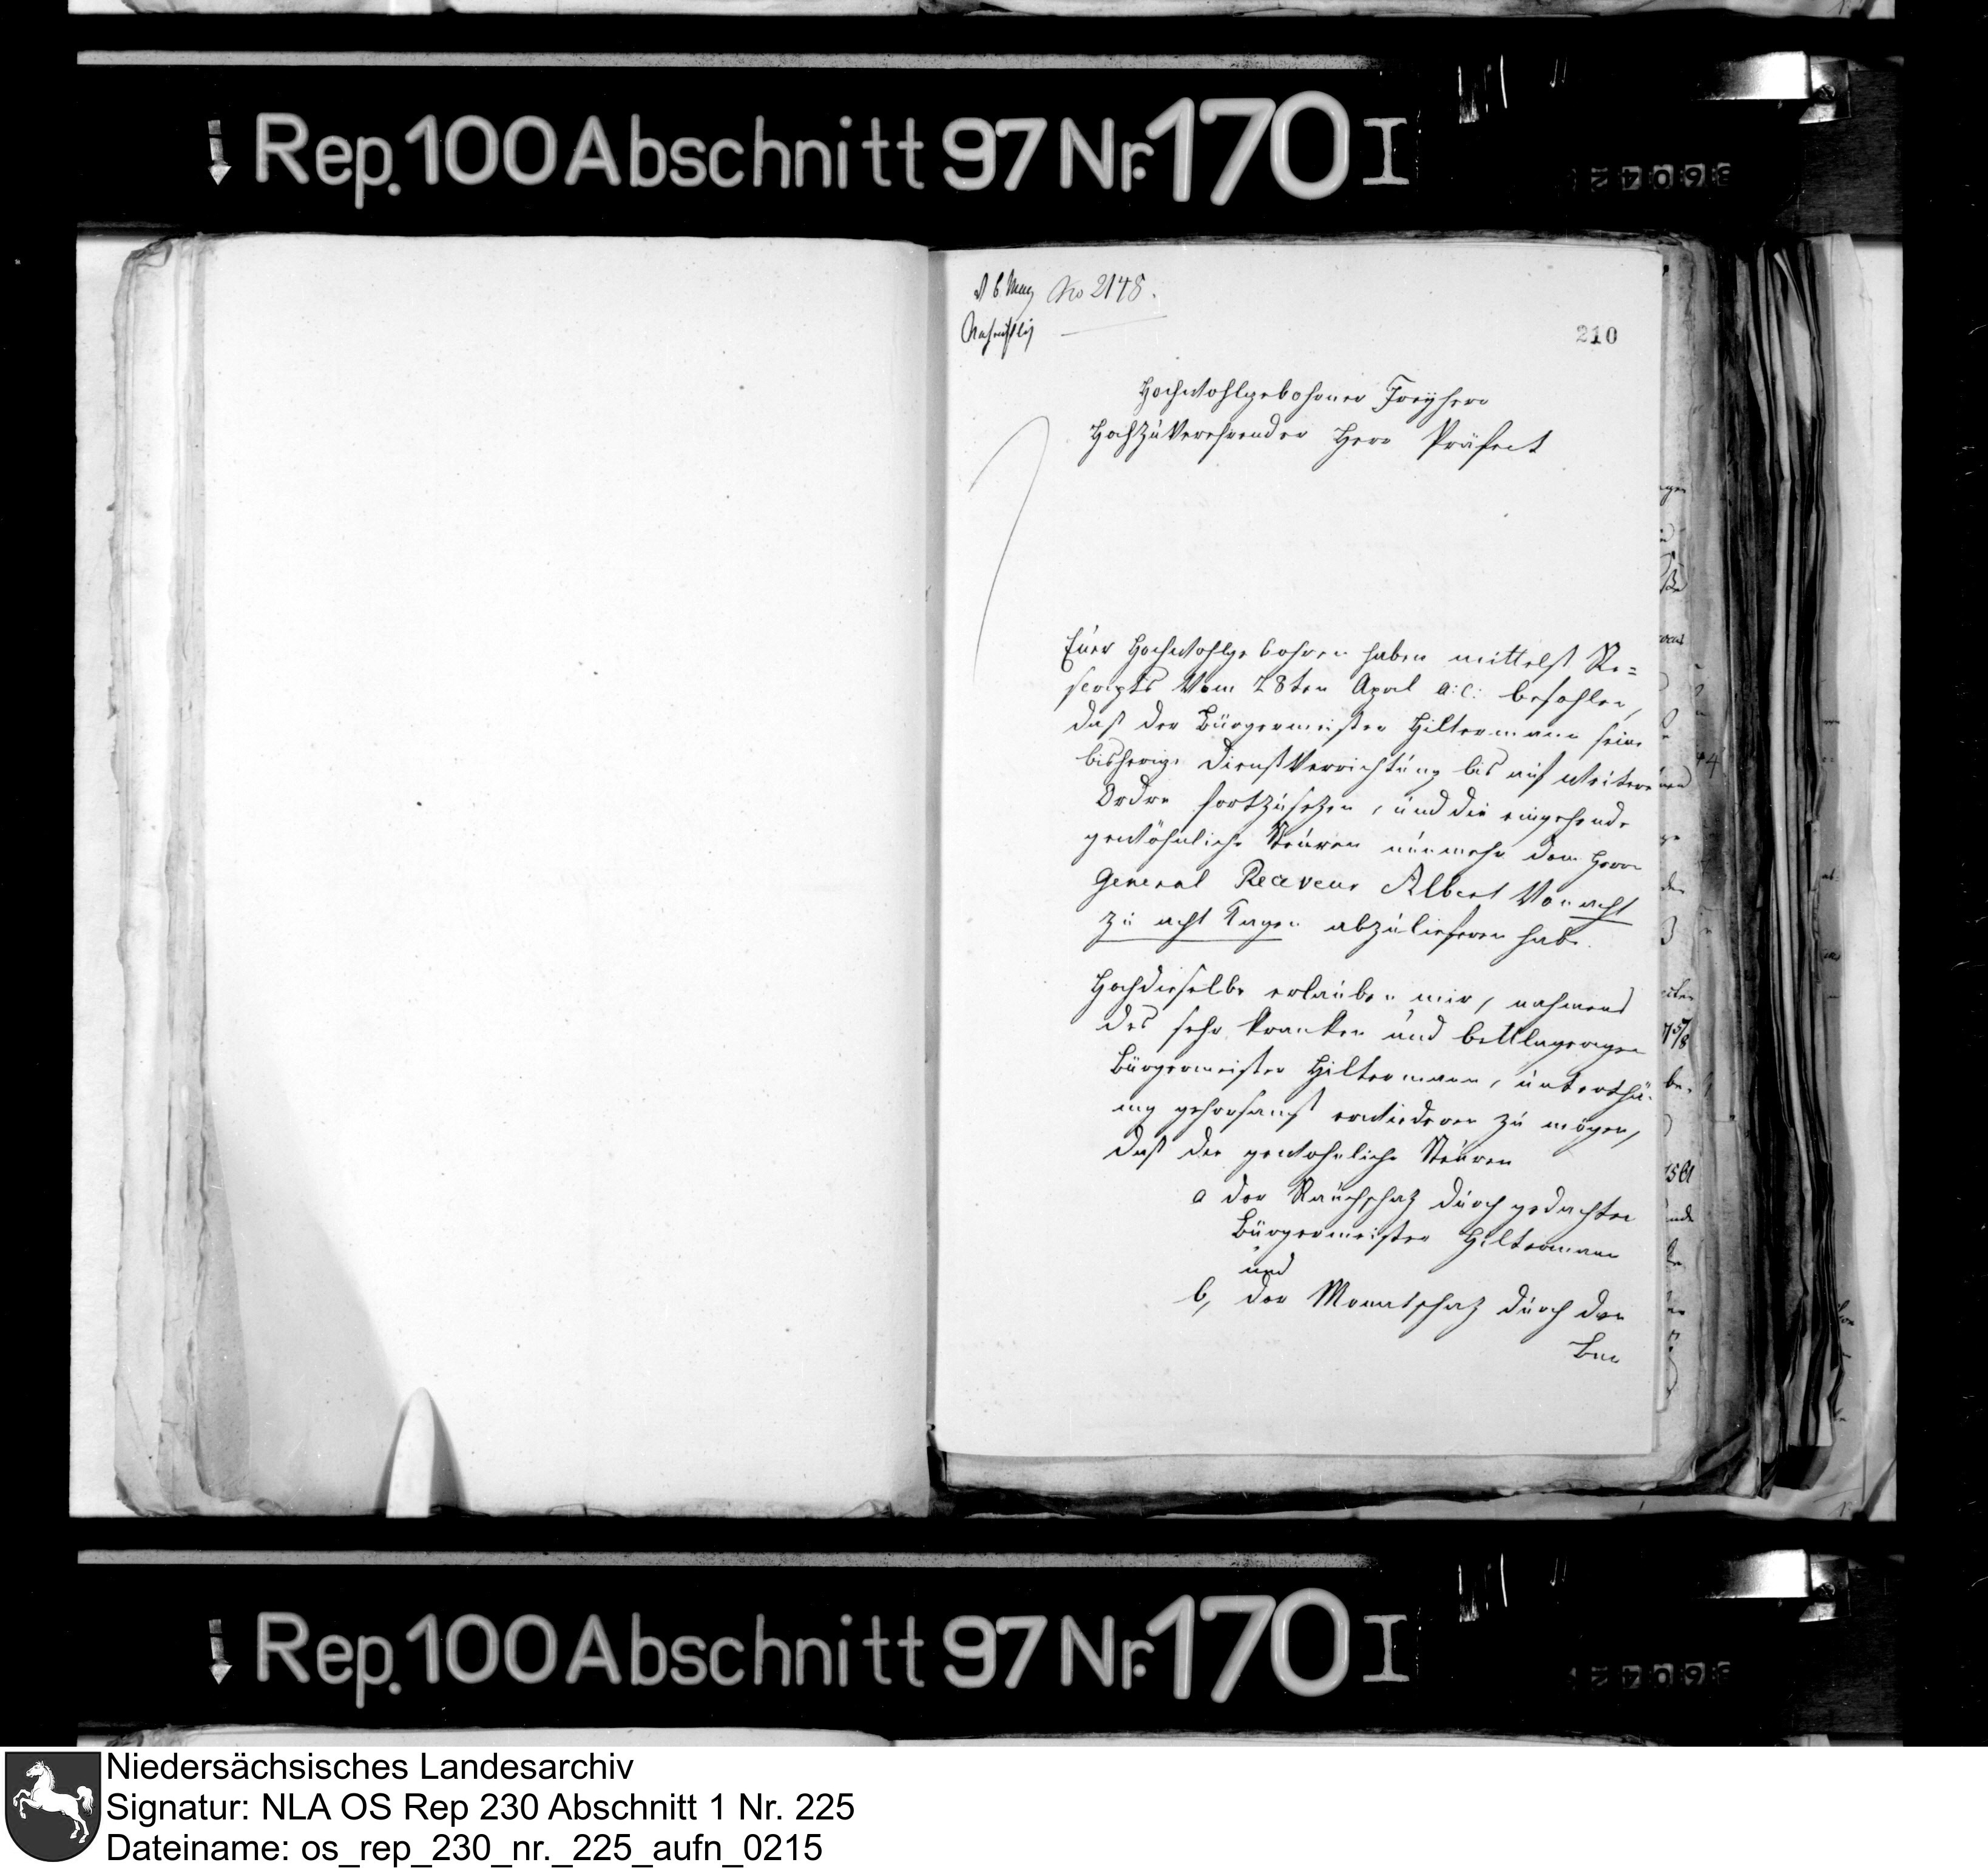 Rep. 100 Abschnitt 97 Nr. 170 I
No 2148.
210
Hochwohlgebohrner Freyherr
Hochzuverehrender Herr Präfect
Euer Hochwohlgebohren haben mittelst Re=
scripts vom 28ten April a: c: befohlen,
daß der Bürgermeister Hiltermann seine
bisherige Dienstverrichtung bis auf weitere
Ordre fortzusezen, und die eingehende
gewöhnliche Steuren nunmehr dem Herrn
General Receveur Albert von acht
zu acht Tagen abzulieferen habe.
Hochdieselbe erlauben mir, nahmens
des sehr kranken und bettlagerigen
Bürgermeister Hiltermann, unterthä-
nig gehorsamst erwiederen zu mögen,
daß die gewohnliche Steuren
a der Rauchschaz durch gedachten
Bürgermeister Hiltermann
und
b, der Monatschaz durch den
Rep. 100 Abschnitt 97 Nr. 170 I
Niedersächsisches Landesarchiv
Signatur: NLA OS Rep 230 Abschnitt 1 Nr. 225
Dateiname: os_rep_230_nr._225_aufn_0215